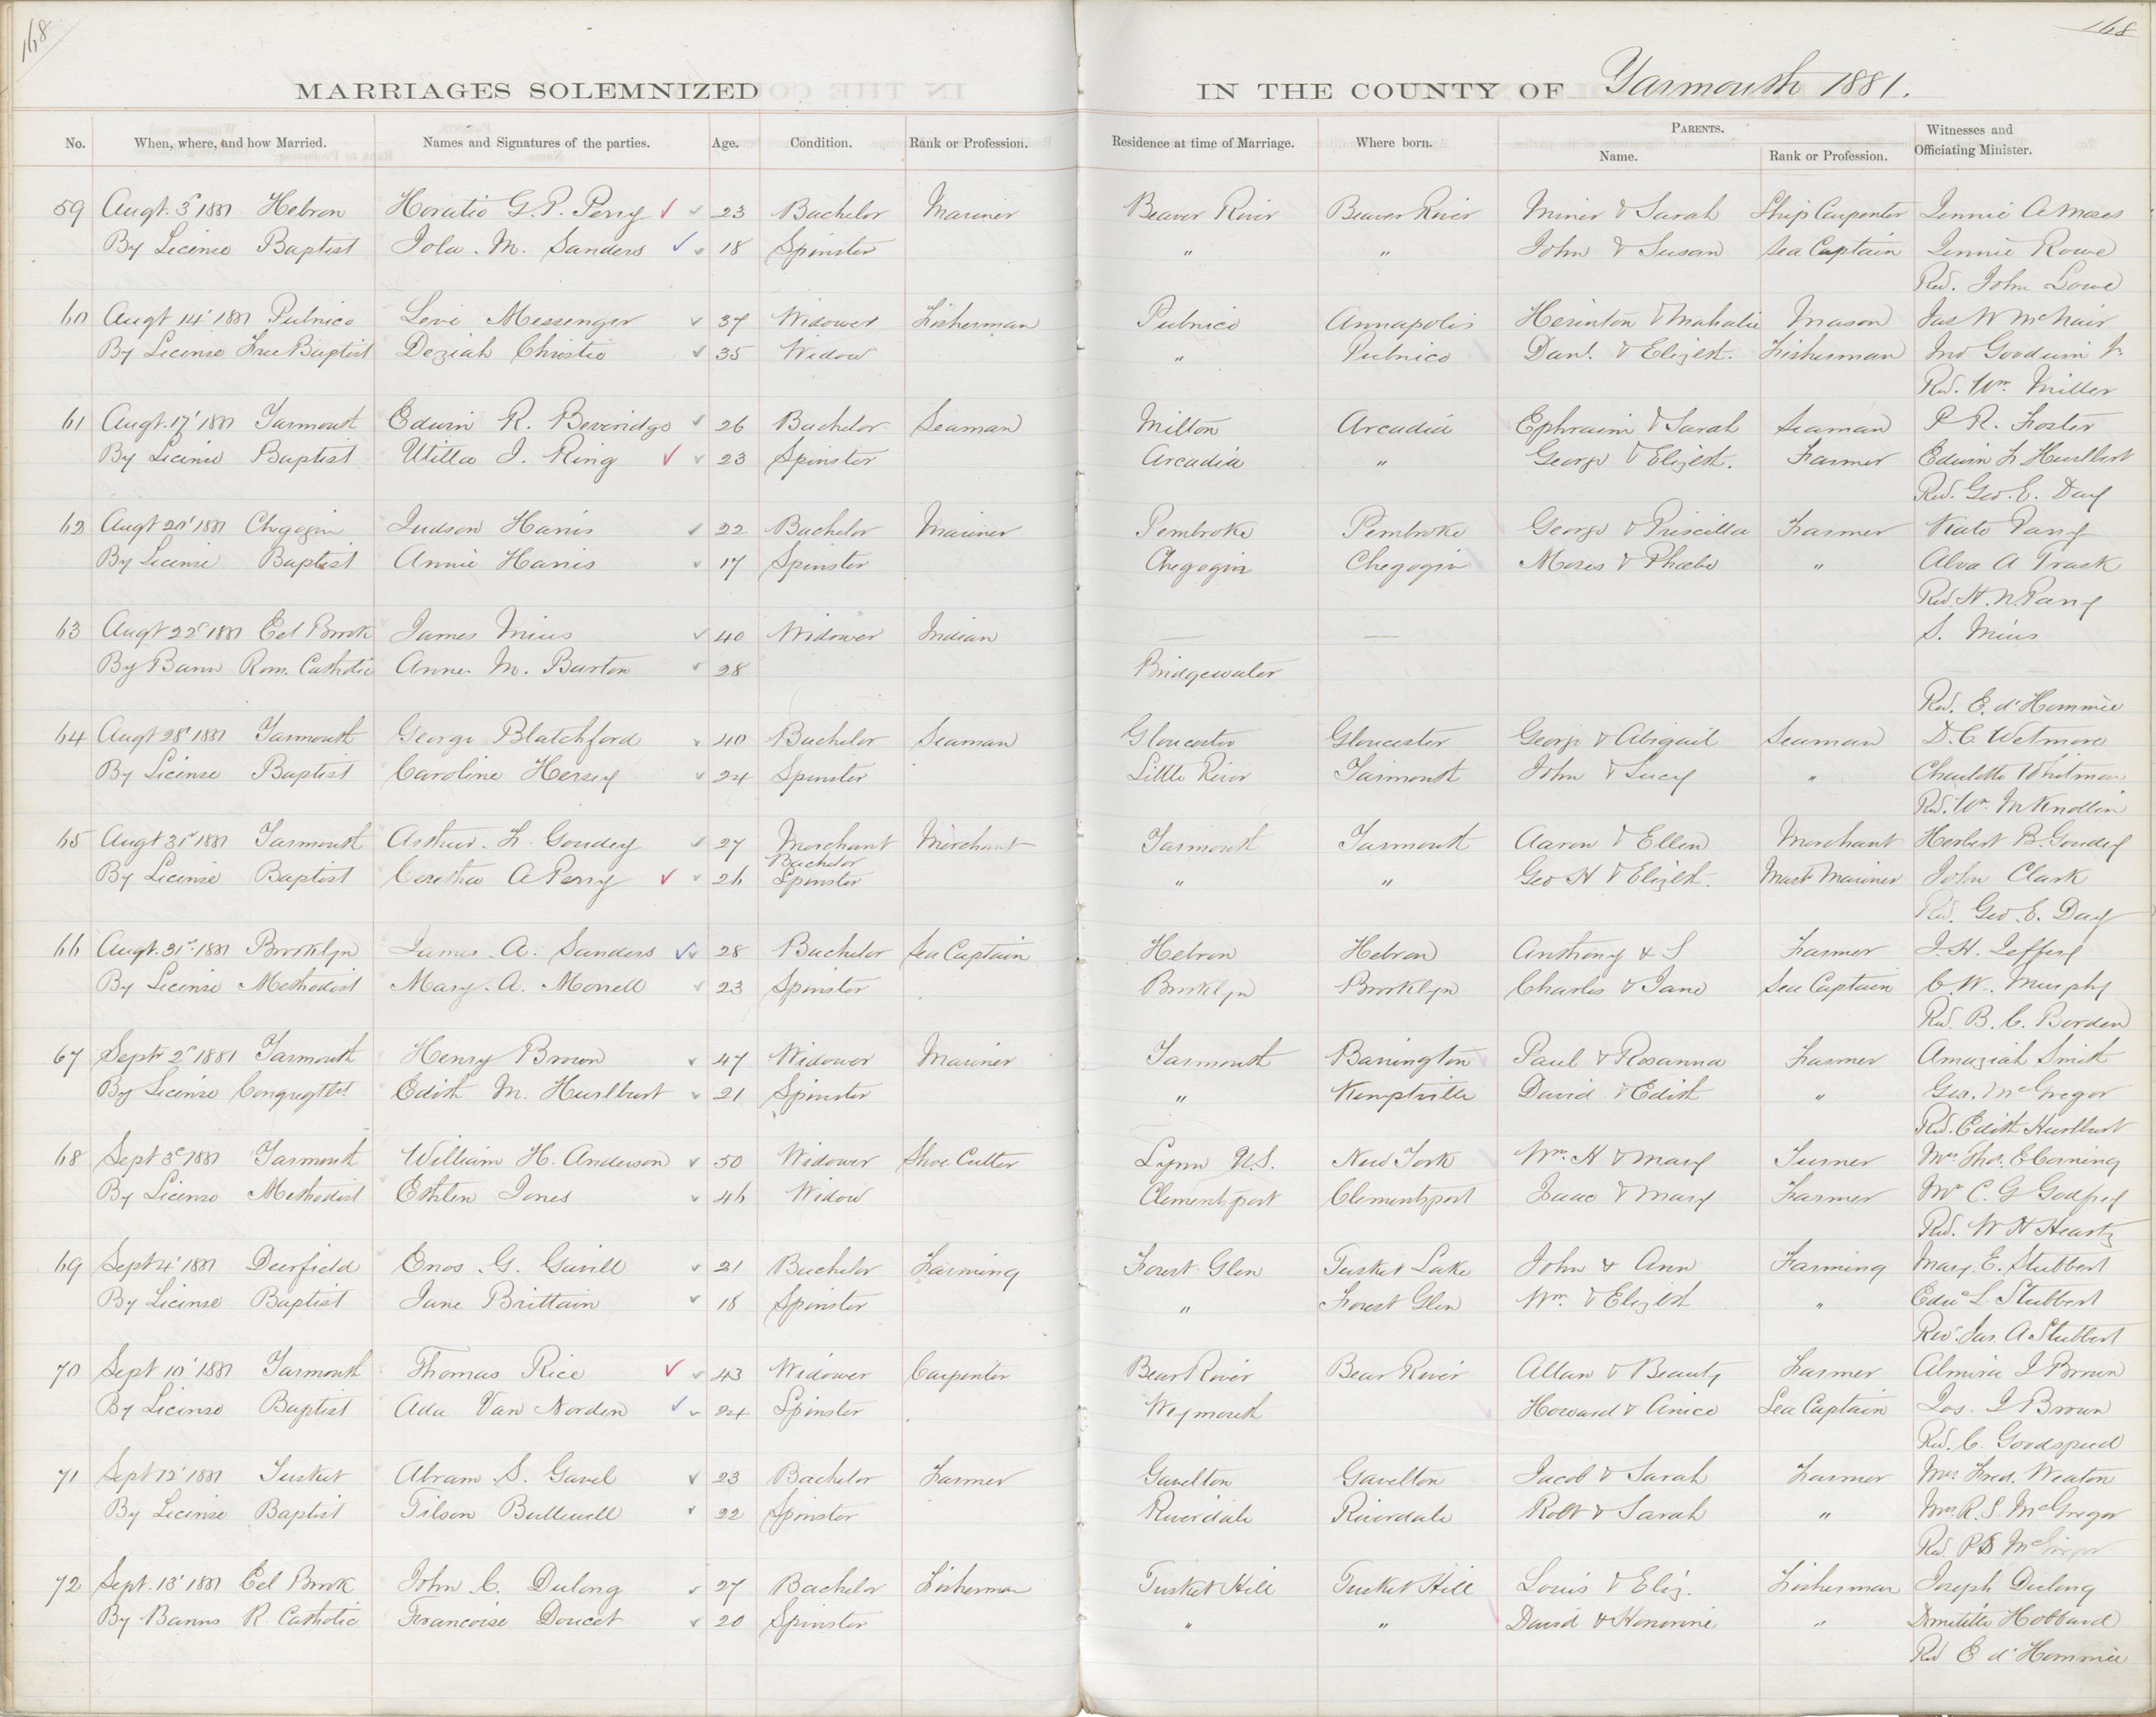 168
168
MARRIAGES SOLEMNIZED IN THE COUNTY OF Yarmouth 1881.
No. When, where, and how Married. Names and Signatures of the parties. Age. Condition. Rank or Profession. Residence at time of Marriage. Where born. PARENTS. Name. Rank or Profession. Witnesses and Officiating Minister.
59 Augt. 3d 1881 Hebron Horatio G. P. Perry 23 Bachelor Mariner Beaver River Beaver River Miner & Sarah Ship Carpenter Jennie A Moses
By License Baptist Iola. M. Sanders 18 Spinster " " John & Susan Sea Captain Jennie Rowe
Rev. John Lowe
60 Augt 14' 1881 Pubnico Levi Messenger 37 Widower Fisherman Pubnico Annapolis Herinton & Mahalie Mason Jas W McNair
By License Free Baptist Deziah Christie 35 Widow " Pubnico Danl. & Elizth. Fisherman Jno Goodwin Jr
Rev. Wm. Miller
61 Augt. 17' 1881 Yarmouth Edwin R. Beveridge 26 Bachelor Seaman Milton Arcadia Ephraim & Sarah Seaman P R. Foster
By License Baptist Utilla J. Ring 23 Spinster Arcadia " George & Elizth. Farmer Edwin F Hurlbert
Rev. Geo. E. Day
62 Augt 20' 1881 Chegogin Judson Harris 22 Bachelor Mariner Pembroke Pembroke George & Priscilla Farmer Kate Parry
By License Baptist Annie Harris 17 Spinster Chegogin Chegogin Moses & Phœbe " Alva A Trask
Rev. H. N. Parry
63 Augt 22d 1881 Eel Brook James Mius 40 Widower Indian — — S. Mius
By Bann Rom. Catholic Anne. M. Barton 28 Bridgewater
Rev. E. d'Hommée
64 Augt 28' 1881 Yarmouth George Blatchford 40 Bachelor Seaman Gloucester Gloucester George & Abigail Seaman D. C. Wetmore
By License Baptist Caroline Hersey 24 Spinster Little River Yarmouth John & Lucy " Charlotte Whitman
Rev. Wm. McKnollin
65 Augt 31st 1881 Yarmouth Arthur. F. Goudey 27 Merchant Merchant Yarmouth Yarmouth Aaron & Ellen Merchant Herbert B. Goudey
Bachelor
By License Baptist Ceretha A Perry 26 Spinster " " Geo H & Elizth. Mast Mariner John Clark
Rev. Geo. E. Day
66 Augt. 31st 1881 Brooklyn James. A. Sanders 28 Bachelor Sea Captain Hebron Hebron Anthony & S Farmer J. H. Jeffery
By License Methodist Mary. A. Morrell 23 Spinster Brooklyn Brooklyn Charles & Jane Sea Captain C. W. Murphy
Rev. B. C. Borden
67 Septr 2d 1881 Yarmouth Henry Brown 47 Widower Mariner Yarmouth Barrington Paul & Rosanna Farmer Amaziah Smith
By License Congregtlst Edith M. Hurlburt 21 Spinster " Kemptville David & Edith " Geo. McGregor
Rev. Edith Hurlburt
68 Sept 3d 1881 Yarmouth William H. Anderson 50 Widower Shoe Cutter Lynn U.S. New York Wm. H & Mary Turner Mrs. Thos. E Corning
By License Methodist Esthten Jones 46 Widow Clementsport Clementsport Isaac & Mary Farmer Mr C. G Godfrey
Rev. W H Heartz
69 Sept 4' 1881 Deerfield Enos. G. Gavill 21 Bachelor Farming Forest Glen Tusket Lake John & Ann Farming Mary. E. Stubbert
By License Baptist Jane Brittain 18 Spinster " Forest Glen Wm. & Elizth " Edw L. Stubbert
Rev. Jas. A Stubbert
70 Sept 10' 1881 Yarmouth Thomas Rice 43 Widower Carpenter Bear River Bear River Allan & Beauty Farmer Almira J Brown
By License Baptist Ada Van Norden 24 Spinster Weymouth Howard & Anice Sea Captain Jos. J Brown
Rev. C. Goodspeed
71 Sept 12' 1881 Tusket Abram S. Gavel 23 Bachelor Farmer Gavelton Gavelton Jacob & Sarah Farmer Mrs Fred. Weaton
By License Baptist Tilson Bullewill 22 Spinster Riverdale Riverdale Robt & Sarah " Mrs. R. S. McGregor
Rev. P S McGregor
72 Sept. 13' 1881 Eel Brook John C. Dulong 27 Bachelor Fisherman Tusket Hill Tusket Hill Louis & Eliz. Fisherman Joseph Dulong
By Banns R. Catholic Francoise Doucet 20 Spinster " " David & Honorine " Domitille Hobbard
Rev E d'Hommée